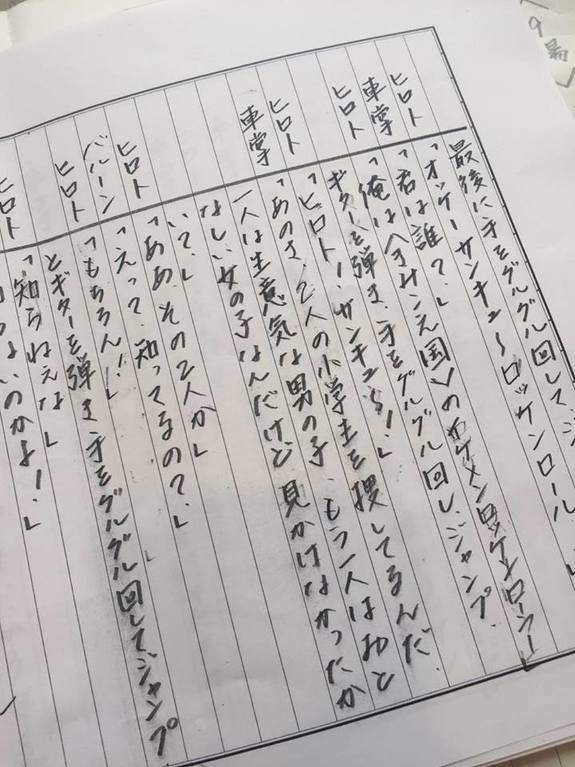 最後に手をグルグル回してジ
ヒロト「オッケーサンキュ〜ロッケンロール
車掌「君は誰?」
ヒロト「俺は 国〉のイケメンロッケンローラー」
ギターを弾き手をグルグル回しジャンプ
ヒロト「ヒロト!サンキュ〜!」
車掌「あのさ、2人の小学生を捜してるんだ
一人は生意気な男の子、もう一人はおと
なしい女の子なんだけど見かけなかったか
い?」
ヒロト「ああ、その2人か」
バルーン「えっ?知ってるの?」
ヒロト「もちろん!!」
とギターを弾き手をグルグル回してジャンプ
ヒロト「知らねえな」
ないのかよ!」